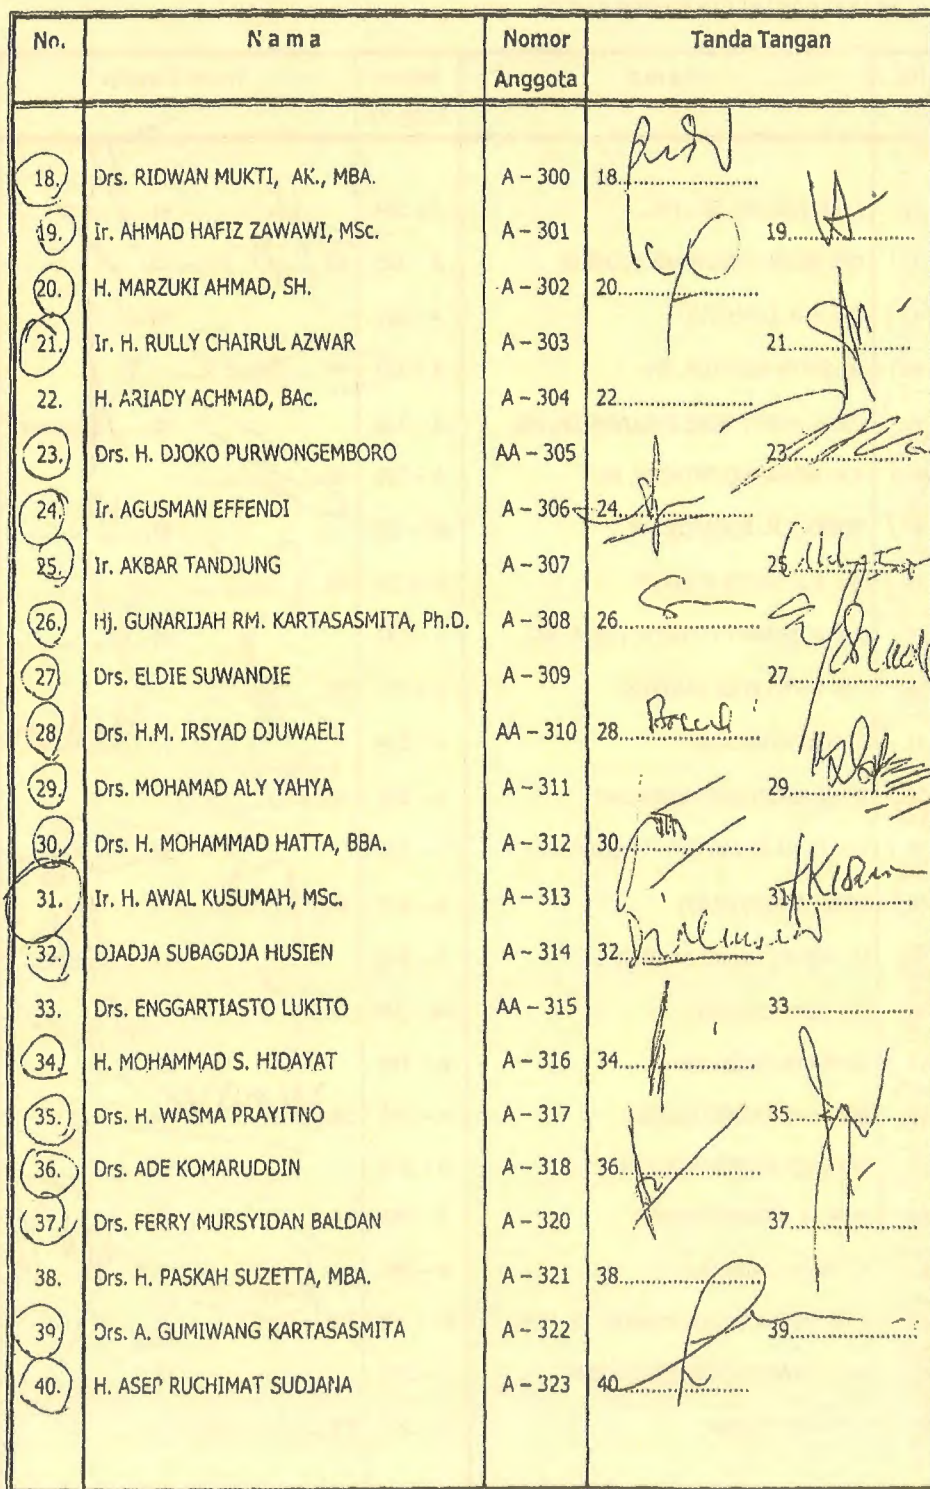 No. Nama Nomor Anggota Tanda Tangan
18. Drs. RIDWAN MUKTI, AK., MBA. A – 300 18..............................
19. Ir. AHMAD HAFIZ ZAWAWI, MSc. A – 301 19..............................
20. H. MARZUKI AHMAD, SH. A – 302 20..............................
21. Ir. H. RULLY CHAIRUL AZWAR A – 303 21..............................
22. H. ARIADY ACHMAD, BAc. A – 304 22..............................
23. Drs. H. DJOKO PURWONGEMBORO AA – 305 23..............................
24. Ir. AGUSMAN EFFENDI A – 306 24..............................
25. Ir. AKBAR TANDJUNG A – 307 25..............................
26. Hj. GUNARIJAH RM. KARTASASMITA, Ph.D. A – 308 26..............................
27. Drs. ELDIE SUWANDIE A – 309 27..............................
28. Drs. H.M. IRSYAD DJUWAELI AA – 310 28..............................
29. Drs. MOHAMAD ALY YAHYA A – 311 29..............................
30. Drs. H. MOHAMMAD HATTA, BBA. A – 312 30..............................
31. Ir. H. AWAL KUSUMAH, MSc. A – 313 31..............................
32. DJADJA SUBAGDJA HUSIEN A – 314 32..............................
33. Drs. ENGGARTIASTO LUKITO AA – 315 33..............................
34. H. MOHAMMAD S. HIDAYAT A – 316 34..............................
35. Drs. H. WASMA PRAYITNO A – 317 35..............................
36. Drs. ADE KOMARUDDIN A – 318 36..............................
37. Drs. FERRY MURSYIDAN BALDAN A – 320 37..............................
38. Drs. H. PASKAH SUZETTA, MBA. A – 321 38..............................
39. Drs. A. GUMIWANG KARTASASMITA A – 322 39..............................
40. H. ASEP RUCHIMAT SUDJANA A – 323 40..............................